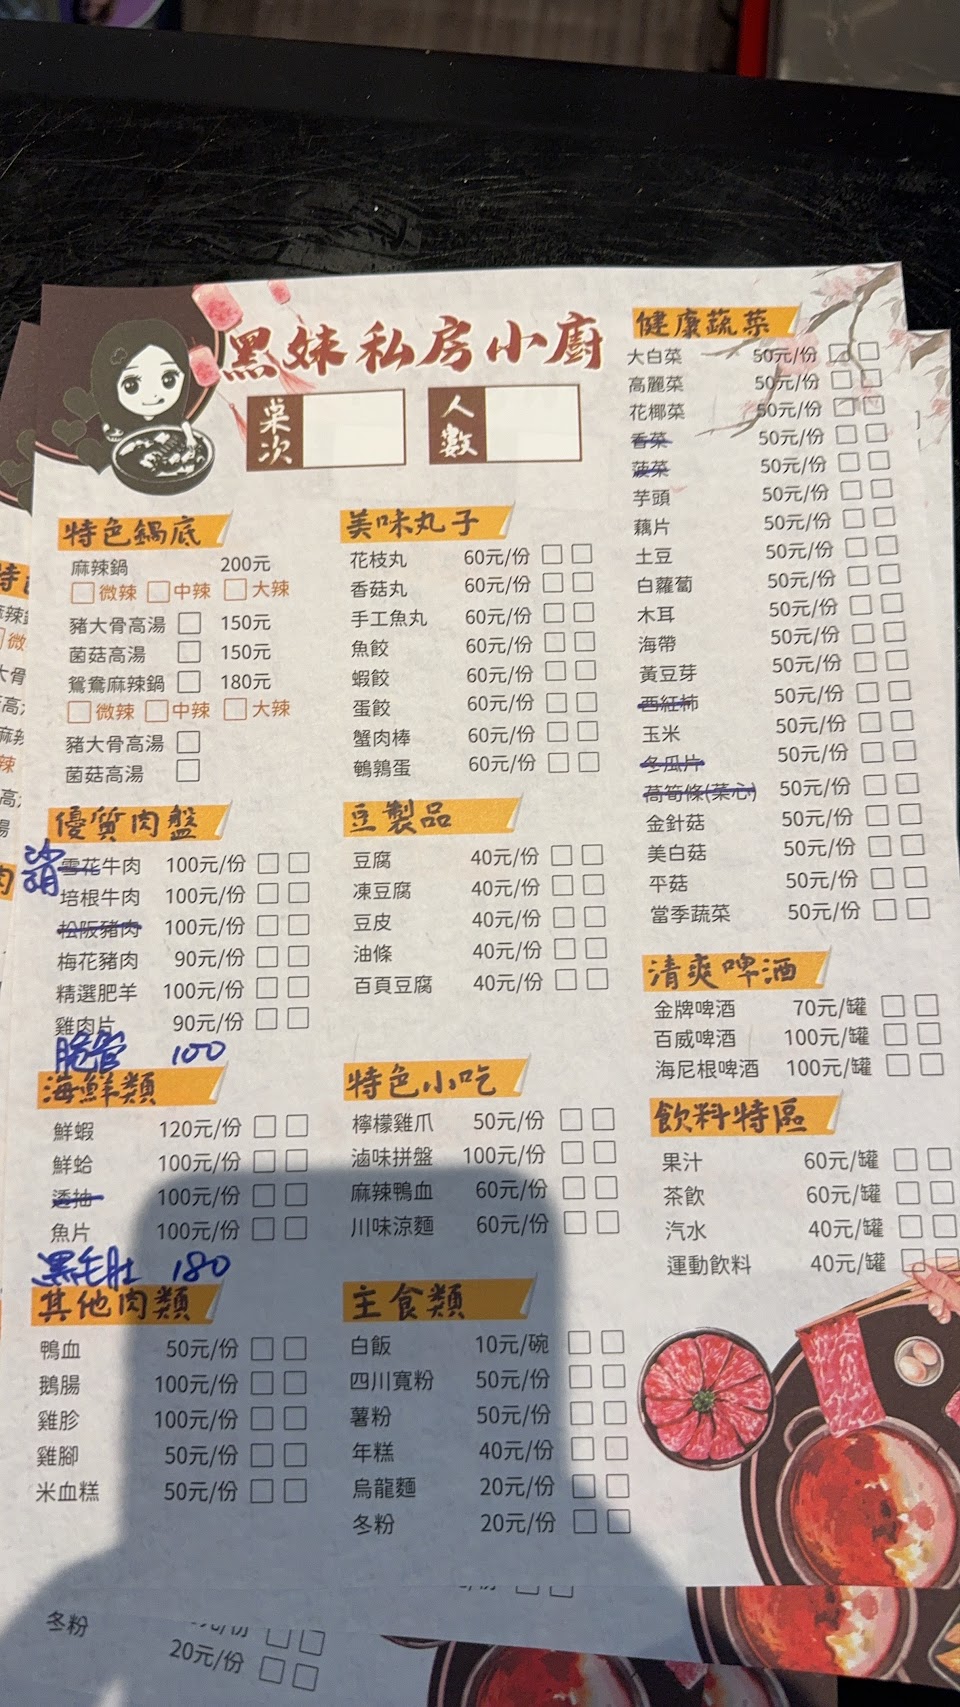 黑妹私房小廚
桌次
人數
特色鍋底
麻辣鍋 200元
微辣 中辣 大辣
豬大骨高湯 150元
菌菇高湯 150元
鴛鴦麻辣鍋 180元
微辣 中辣 大辣
豬大骨高湯
菌菇高湯
優質肉盤
沙朗
雪花牛肉 100元/份
培根牛肉 100元/份
松阪豬肉 100元/份
梅花豬肉 90元/份
精選肥羊 100元/份
雞肉片 90元/份
脆管 100
海鮮類
鮮蝦 120元/份
鮮蛤 100元/份
透抽 100元/份
魚片 100元/份
黑毛肚 180
其他肉類
鴨血 50元/份
鵝腸 100元/份
雞胗 100元/份
雞腳 50元/份
米血糕 50元/份
美味丸子
花枝丸 60元/份
香菇丸 60元/份
手工魚丸 60元/份
魚餃 60元/份
蝦餃 60元/份
蛋餃 60元/份
蟹肉棒 60元/份
鵪鶉蛋 60元/份
豆製品
豆腐 40元/份
凍豆腐 40元/份
豆皮 40元/份
油條 40元/份
百頁豆腐 40元/份
特色小吃
檸檬雞爪 50元/份
滷味拼盤 100元/份
麻辣鴨血 60元/份
川味涼麵 60元/份
主食類
白飯 10元/碗
四川寬粉 50元/份
薯粉 50元/份
年糕 40元/份
烏龍麵 20元/份
冬粉 20元/份
健康蔬菜
大白菜 50元/份
高麗菜 50元/份
花椰菜 50元/份
香菜 50元/份
菠菜 50元/份
芋頭 50元/份
藕片 50元/份
土豆 50元/份
白蘿蔔 50元/份
木耳 50元/份
海帶 50元/份
黃豆芽 50元/份
西紅柿 50元/份
玉米 50元/份
冬瓜片 50元/份
萵筍條(菜心) 50元/份
金針菇 50元/份
美白菇 50元/份
平菇 50元/份
當季蔬菜 50元/份
清爽啤酒
金牌啤酒 70元/罐
百威啤酒 100元/罐
海尼根啤酒 100元/罐
飲料特區
果汁 60元/罐
茶飲 60元/罐
汽水 40元/罐
運動飲料 40元/罐
冬粉 20元/份